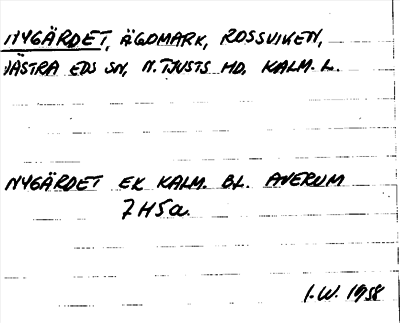 NYGÄRDET, ÄGOMARK, ROSSVIKEN,
VÄSTRA EDS SN, N. TJUSTS HD, KALM. L.
NYGÄRDET EK KALM. BL. AVERUM
7H5a.
I.W. 1958